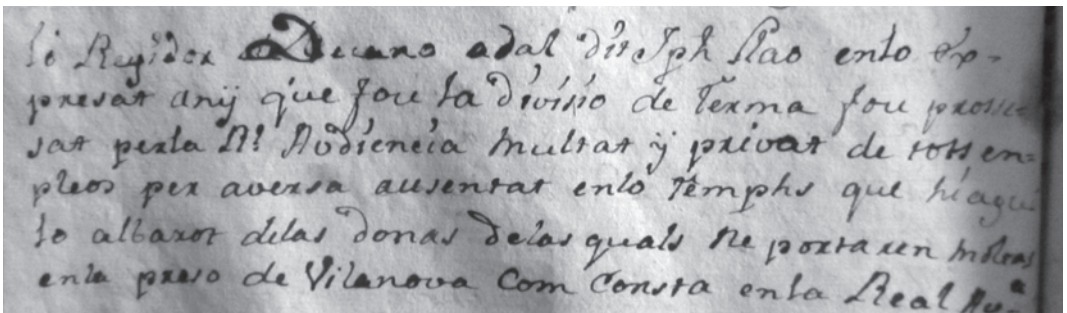 lo Regidor Decano adal dit Jph Rao enlo ex-
presat anÿ que fou la divisio de Terma fou prosse
sat perla Rl Audiencia Multat ÿ privat de tots en=
pleos per aversa ausentat enlo Temphs que hi agué
lo albarot delas donas delas quals ne portaren moltas
enla preso de Vilanova Com Consta enla Real Aua